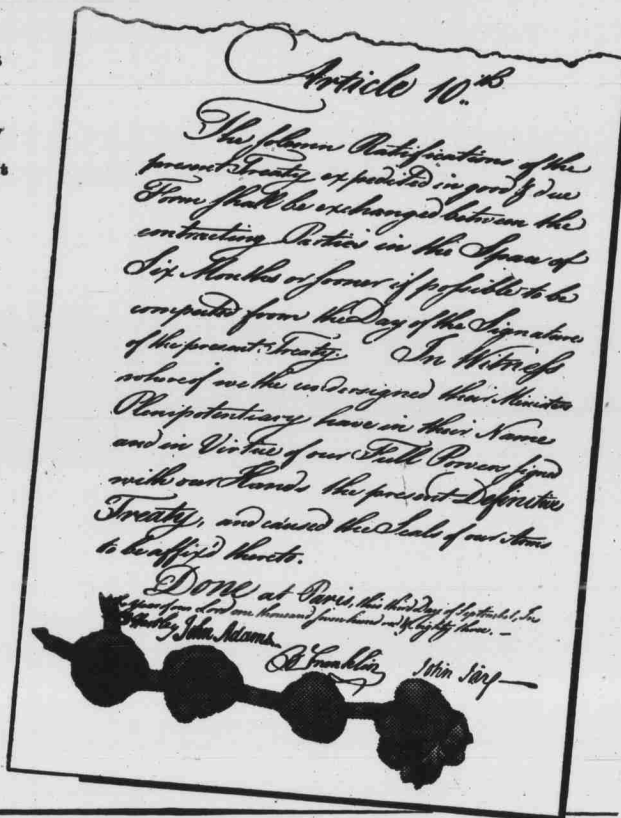 Article 10.th
The solemn Ratifications of the
present Treaty expedited in good & due
Form shall be exchanged between the
contracting Parties in the Space of
Six Months or sooner if possible to be
computed from the Day of the Signature
of the present Treaty. In Witness
whereof we the undersigned their Ministers
Plenipotentiary have in their Name
and in Virtue of our Full Powers signed
with our Hands the present Definitive
Treaty, and caused the Seals of our Arms
to be affix'd thereto.
Done at Paris, this third Day of September, In
the year of our Lord one thousand seven hundred & eighty three. —
D Hartley John Adams.
B Franklin John Jay —